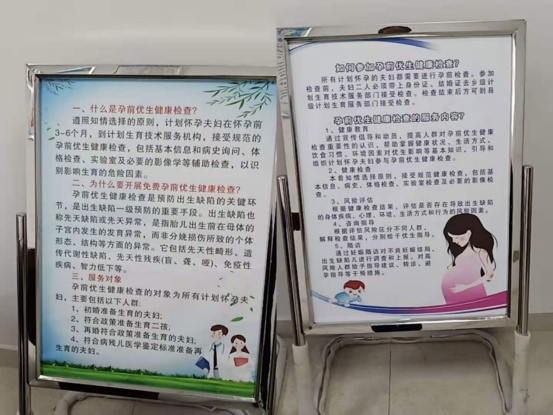 一、什么是孕前优生健康检查?
遵照知情选择的原则，计划怀孕夫妇在怀孕前
3-6个月，到计划生育技术服务机构，接受规范的
孕前优生健康检查，包括基本信息和病史询问、体
格检查、实验室及必要的影像学等辅助检查，以识
别影响生育的危险因素。
二、为什么要开展免费孕前优生健康检查?
孕前优生健康检查是预防出生缺陷的关键环
节，是出生缺陷一级预防的重要手段。出生缺陷也
称先天缺陷或先天异常，是指胎儿出生前在母体的
子宫内发生的发育异常，而非分娩损伤所致的个体
形态、结构等方面的异常。它包括先天性畸形、遗
传代谢性缺陷、先天性残疾(盲、聋、哑)、免疫性
疾病、智力低下等。
三、服务对象
孕前优生健康检查的对象为所有计划怀孕夫
妇，主要包括以下人群:
1、初婚准备生育的夫妇;
2、符合政策准备生育二孩;
3、再婚符合政策准备生育的夫妇。
4、符合病残儿医学鉴定标准准备再
生育的夫妇。
如何参加孕前优生健康检查?
所有计划怀孕的夫妇都需要进行孕前检查。参加
检查前，夫妇二人必须带上身份证、结婚证去乡级计
划生育技术服务部门接受检查。检查结束后方可到县
级计划生育服务部门接受检查。
孕前优生健康检查的服务内容?
1、健康教育
通过宣传倡导和动员，提高人群对孕前优生健康
检查重要性的认识，帮助掌握健康状况、生活方式、
饮食习惯、环境因素对优生影响等基本知识，引导和
组织计划怀孕夫妇参与孕前优生健康检查。
2、健康检查
本着知情选择原则，接受规范健康检查，包括基
本信息、病史、体格检查、实验室检查及必要的影像检
查。
3、风险评估
根据健康检查结果，评估是否存在导致出生缺陷
的身体疾病、心理、环境、生活方式和行为的风险因素。
4、咨询指导
根据评估风险区分不同人群，
解释检查结果，分别给予优生指导。
5、随访
通过妊娠随访对不良妊娠结局、
出生缺陷儿进行调查和上报，对高
风险人群给予指导建议、转诊、避
孕指导等干预措施。